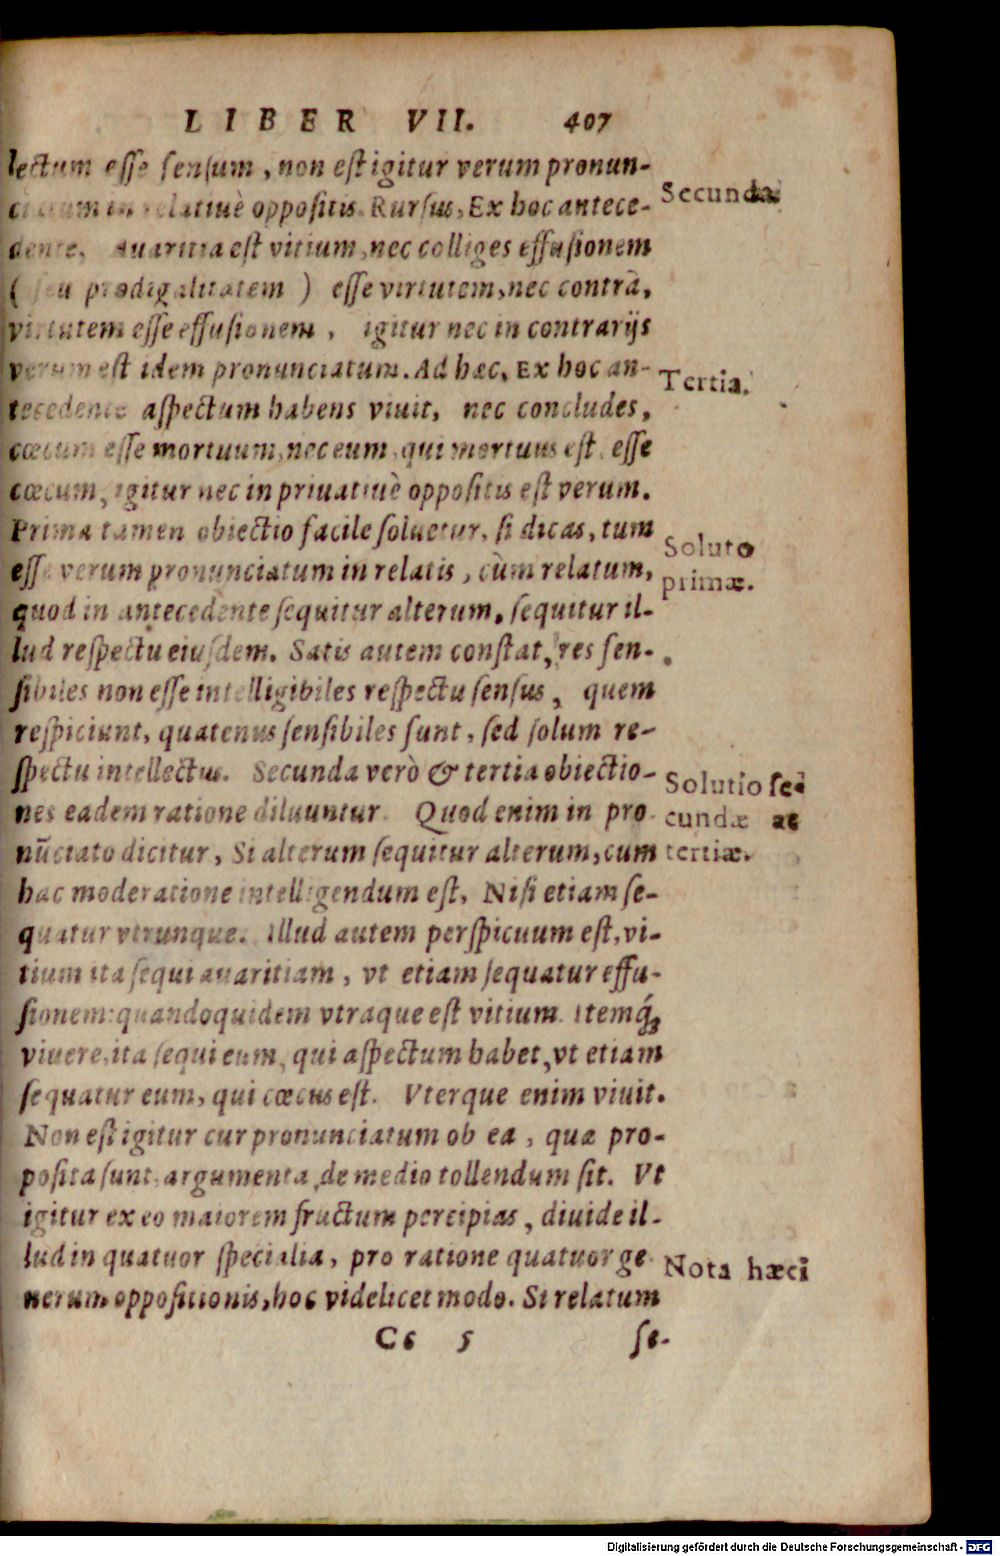 LIBER VII. 407
lectum esse sensum, non est igitur verum pronun-
ciatum in relatiuè oppositis. Rursus, Ex hoc antece-
Secunda.
dente, Auaritia est vitium, nec colliges effusionem
(seu prodigalitatem) esse virtutem, nec contrà,
virtutem esse effusionem, igitur nec in contrarijs
verum est idem pronunciatum. Ad hæc, Ex hoc an-
Tertia.
tecedente aspectum habens viuit, nec concludes,
cœcum esse mortuum, nec eum, qui mortuus est, esse
cœcum, igitur nec in priuatiuè oppositis est verum.
Prima tamen obiectio facile soluetur, si dicas, tum
Soluto
esse verum pronunciatum in relatis, cùm relatum,
primæ.
quod in antecedente sequitur alterum, sequitur il-
lud respectu eiusdem. Satis autem constat, res sen-
sibiles non esse intelligibiles respectu sensus, quem
respiciunt, quatenus sensibiles sunt, sed solum re-
spectu intellectus. Secunda verò & tertia obiectio-
Solutio se-
nes eadem ratione diluuntur. Quod enim in pro
cundæ ac
nūctato dicitur, Si alterum sequitur alterum, cum
tertiæ.
hac moderatione intelligendum est, Nisi etiam se-
quatur vtrunque. Illud autem perspicuum est, vi-
tium ita sequi auaritiam, vt etiam sequatur effu-
sionem: quandoquidem vtraque est vitium. Itemq́;
viuere, ita sequi eum, qui aspectum habet, vt etiam
sequatur eum, qui cœcus est. Vterque enim viuit.
Non est igitur cur pronunciatum ob ea, quæ pro-
posita sunt, argumenta, de medio tollendum sit. Vt
igitur ex eo maiorem fructum percipias, diuide il-
lud in quatuor specialia, pro ratione quatuor ge
Nota hæc
nerum oppositionis, hoc videlicet modo. Si relatum
Cc 5 se-
Digitalisierung gefördert durch die Deutsche Forschungsgemeinschaft - DFG